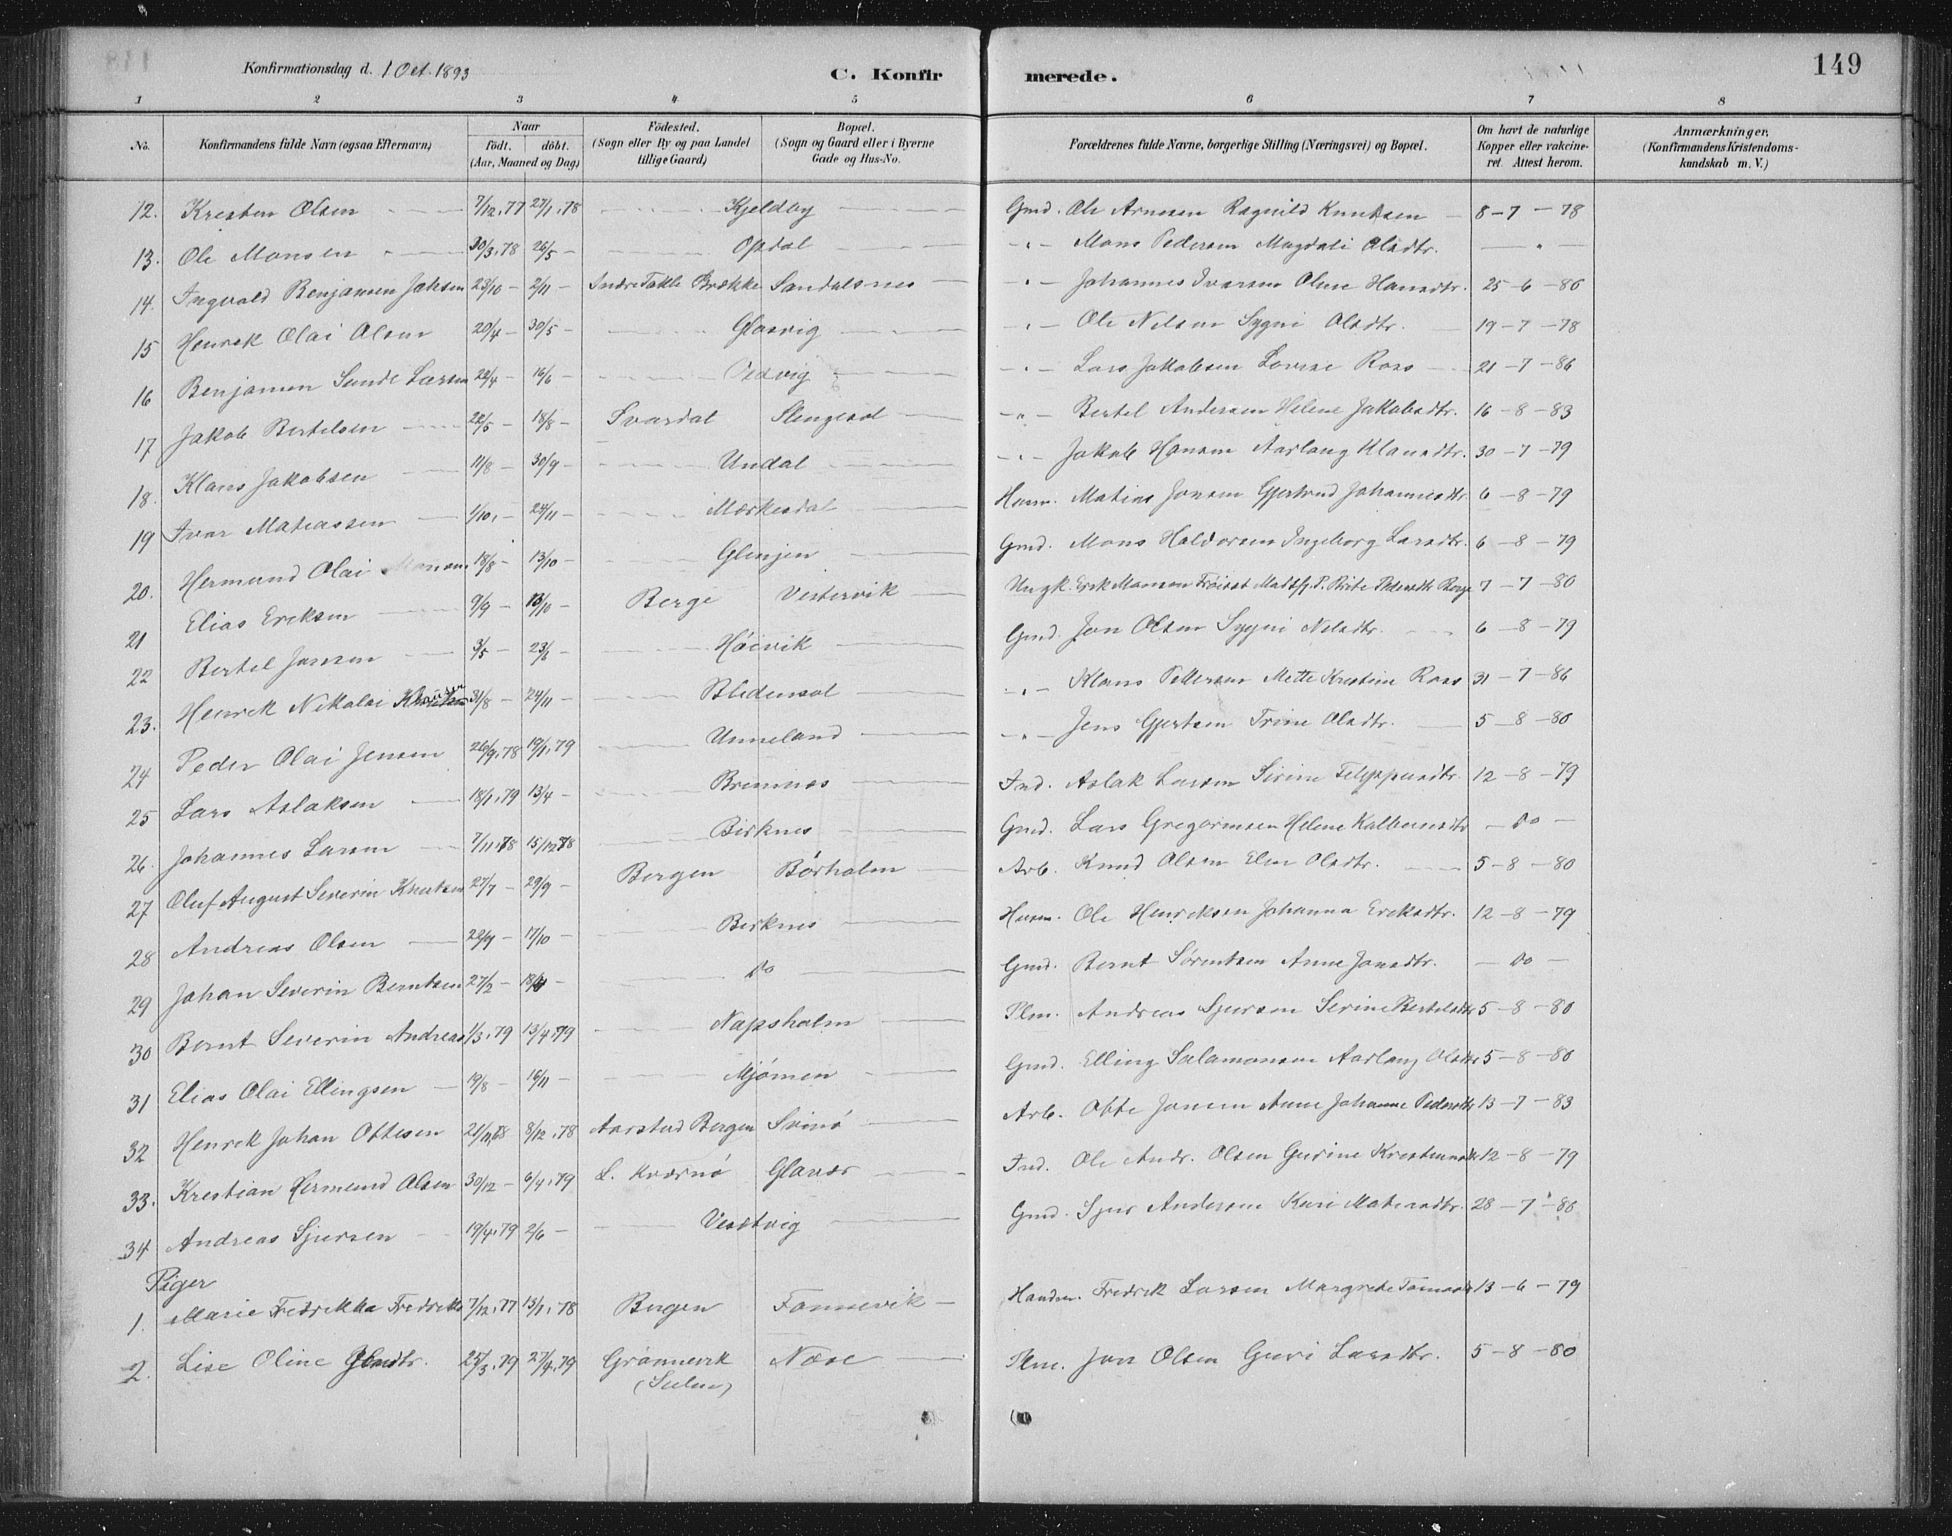 Konfirmationsdag d. 1 Oct. 1893
C. Konfirmerede.
149
1 2 3 4 5 6 7 8
No.
Konfirmandens fulde Navn (ogsaa Efternavn)
Naar født. døbt. (Aar, Maaned og Dag)
Fødested. (Sogn eller By og paa Landet tillige Gaard)
Bopæl. (Sogn og Gaard eller i Byerne Gade og Hus-No.
Forældrenes fulde Navne, borgerlige Stilling (Næringsvei) og Bopæl.
Om havt de naturlige Kopper eller vakcineret. Attest herom.
Anmærkninger, (Konfirmandens Kristendomskundskab m. V.)
12. Kresten Olsen 7/12.77 27/1.78 Kjeldby Gmd. Ole Arnesen Ragnild Knudsen 8-7-78
13. Ole Monsen 30/3.78 26/5 - Opdal -"- Mons Pedersen Magdali Olsdtr. - " -
14. Ingvald Benjamen Johsen 23/10 - 2/11 - Indre Takle Brække Sandalsnes -"- Johannes Ivarsen Oline Hansdtr. 25-6-86
15 Henrik Olai Olsen 20/4 - 30/5 - Glosvig -"- Ole Nelsen Sygni Olsdtr. 19-7-78
16 Benjamen Sunde Larsen 22/4 - 16/6 - Vedvig -"- Lars Jakobsen Lovise Ross 21-7-86
17 Jakob Bertelsen 22/5 - 18/8 - Svardal Slengesol -"- Bertel Andersen Helene Jakobsdtr. 16-8-83
18. Klaus Jakobsen 11/8 - 30/9 - Undal -"- Jakob Hansen Aarlaug Klausdtr. 30-7-79
19 Ivar Mateassen 1/10. - 24/11 - Mærkesdal Husm. Matias Jonsen Gjertrud Johannesdtr. 6-8-79
20. Hermund Olai Monsen 18/8 - 13/10 - Glenjen Gmd. Mons Haldorsen Ingeborg Larsdtr. 6-8-79
21 Elias Ereksen 9/9 - 13/10 - Berge Vestervik Ungk. Erek Monsen 7-7-80
22 Bertel Jonsen 3/5 - 23/6 - Høivik Gmd. Jon Olsen Sygni Nelsdtr. 6-8-79
23. Henrik Nikolai Klausen 31/8 - 24/11 - Bledensol -"- Klaus Pettersen Mette Krestine Ross 31-7-86
24 Peder Olai Jensen 26/9.78 19/1.79 Unneland -"- Jens Gjertsen Trine Olsdtr. 5-8-80
25 Lars Aslaksen 18/1.79 13/4 - Bremnes Ind. Aslak Larsen Sirine Felippusdtr. 12-8-79
26. Johannes Larsen 7/11.78 15/12.78 Birknes Gmd. Lars Gregoriusen Helene Kolbensdtr. - Do -
27 Oluf August Severin Knutsen 27/7 - 29/9 - Bergen Børholm Arb. Knud Olsen Elen Olsdtr. 5-8-80
28 Andreas Olsen 22/9 - 17/10 - Birknes Husm. Ole Henriksen Johanna Ereksdtr. 12-8-79
29 Johan Severin Berntsen 27/2 - 18/4 - Do Gmd. Bernt Sørentsen Anne Jonsdtr. - Do -
30 Bernt Severin Andreas 1/3.79 13/4.79 Napsholm Plm. Andreas Sjursen Serine Bertelsdtr 5-8-80
31 Elias Olai Ellingsen 19/8 - 16/11 - Mjømen Gmd. Elling Salamonsen Aarlaug Olsdtr 5-8-80
32 Henrik Johan Ottesen 21/11.78 8/12.78 Aarstad Bergen Svinø Arb. Otte Jonsen Anne Johanne Pedersdtr 13-7-83
33. Krestian Hermund Olsen 30/12 - 6/4.79 L. Kværnø Glavær Ind. Ole Andr. Olsen Gurine Krestensdtr 12-8-79
34 Andreas Sjursen 19/4.79 2/6 - Vesetvig Gmd. Sjur Andersen Kari Matiasdtr. 28-7-86
Piger
1. Marie Fredrikka Fredriks 7/12.77 13/1.78 Bergen Fonnevik Handm. Fredrik Larsen Margrete 13-6-79
2. Lise Oline 25/3.79 27/4.79 Grønnevik Nese Plm. Jon Olsen Guri Larsdtr. 5-8-80
(Sulen)